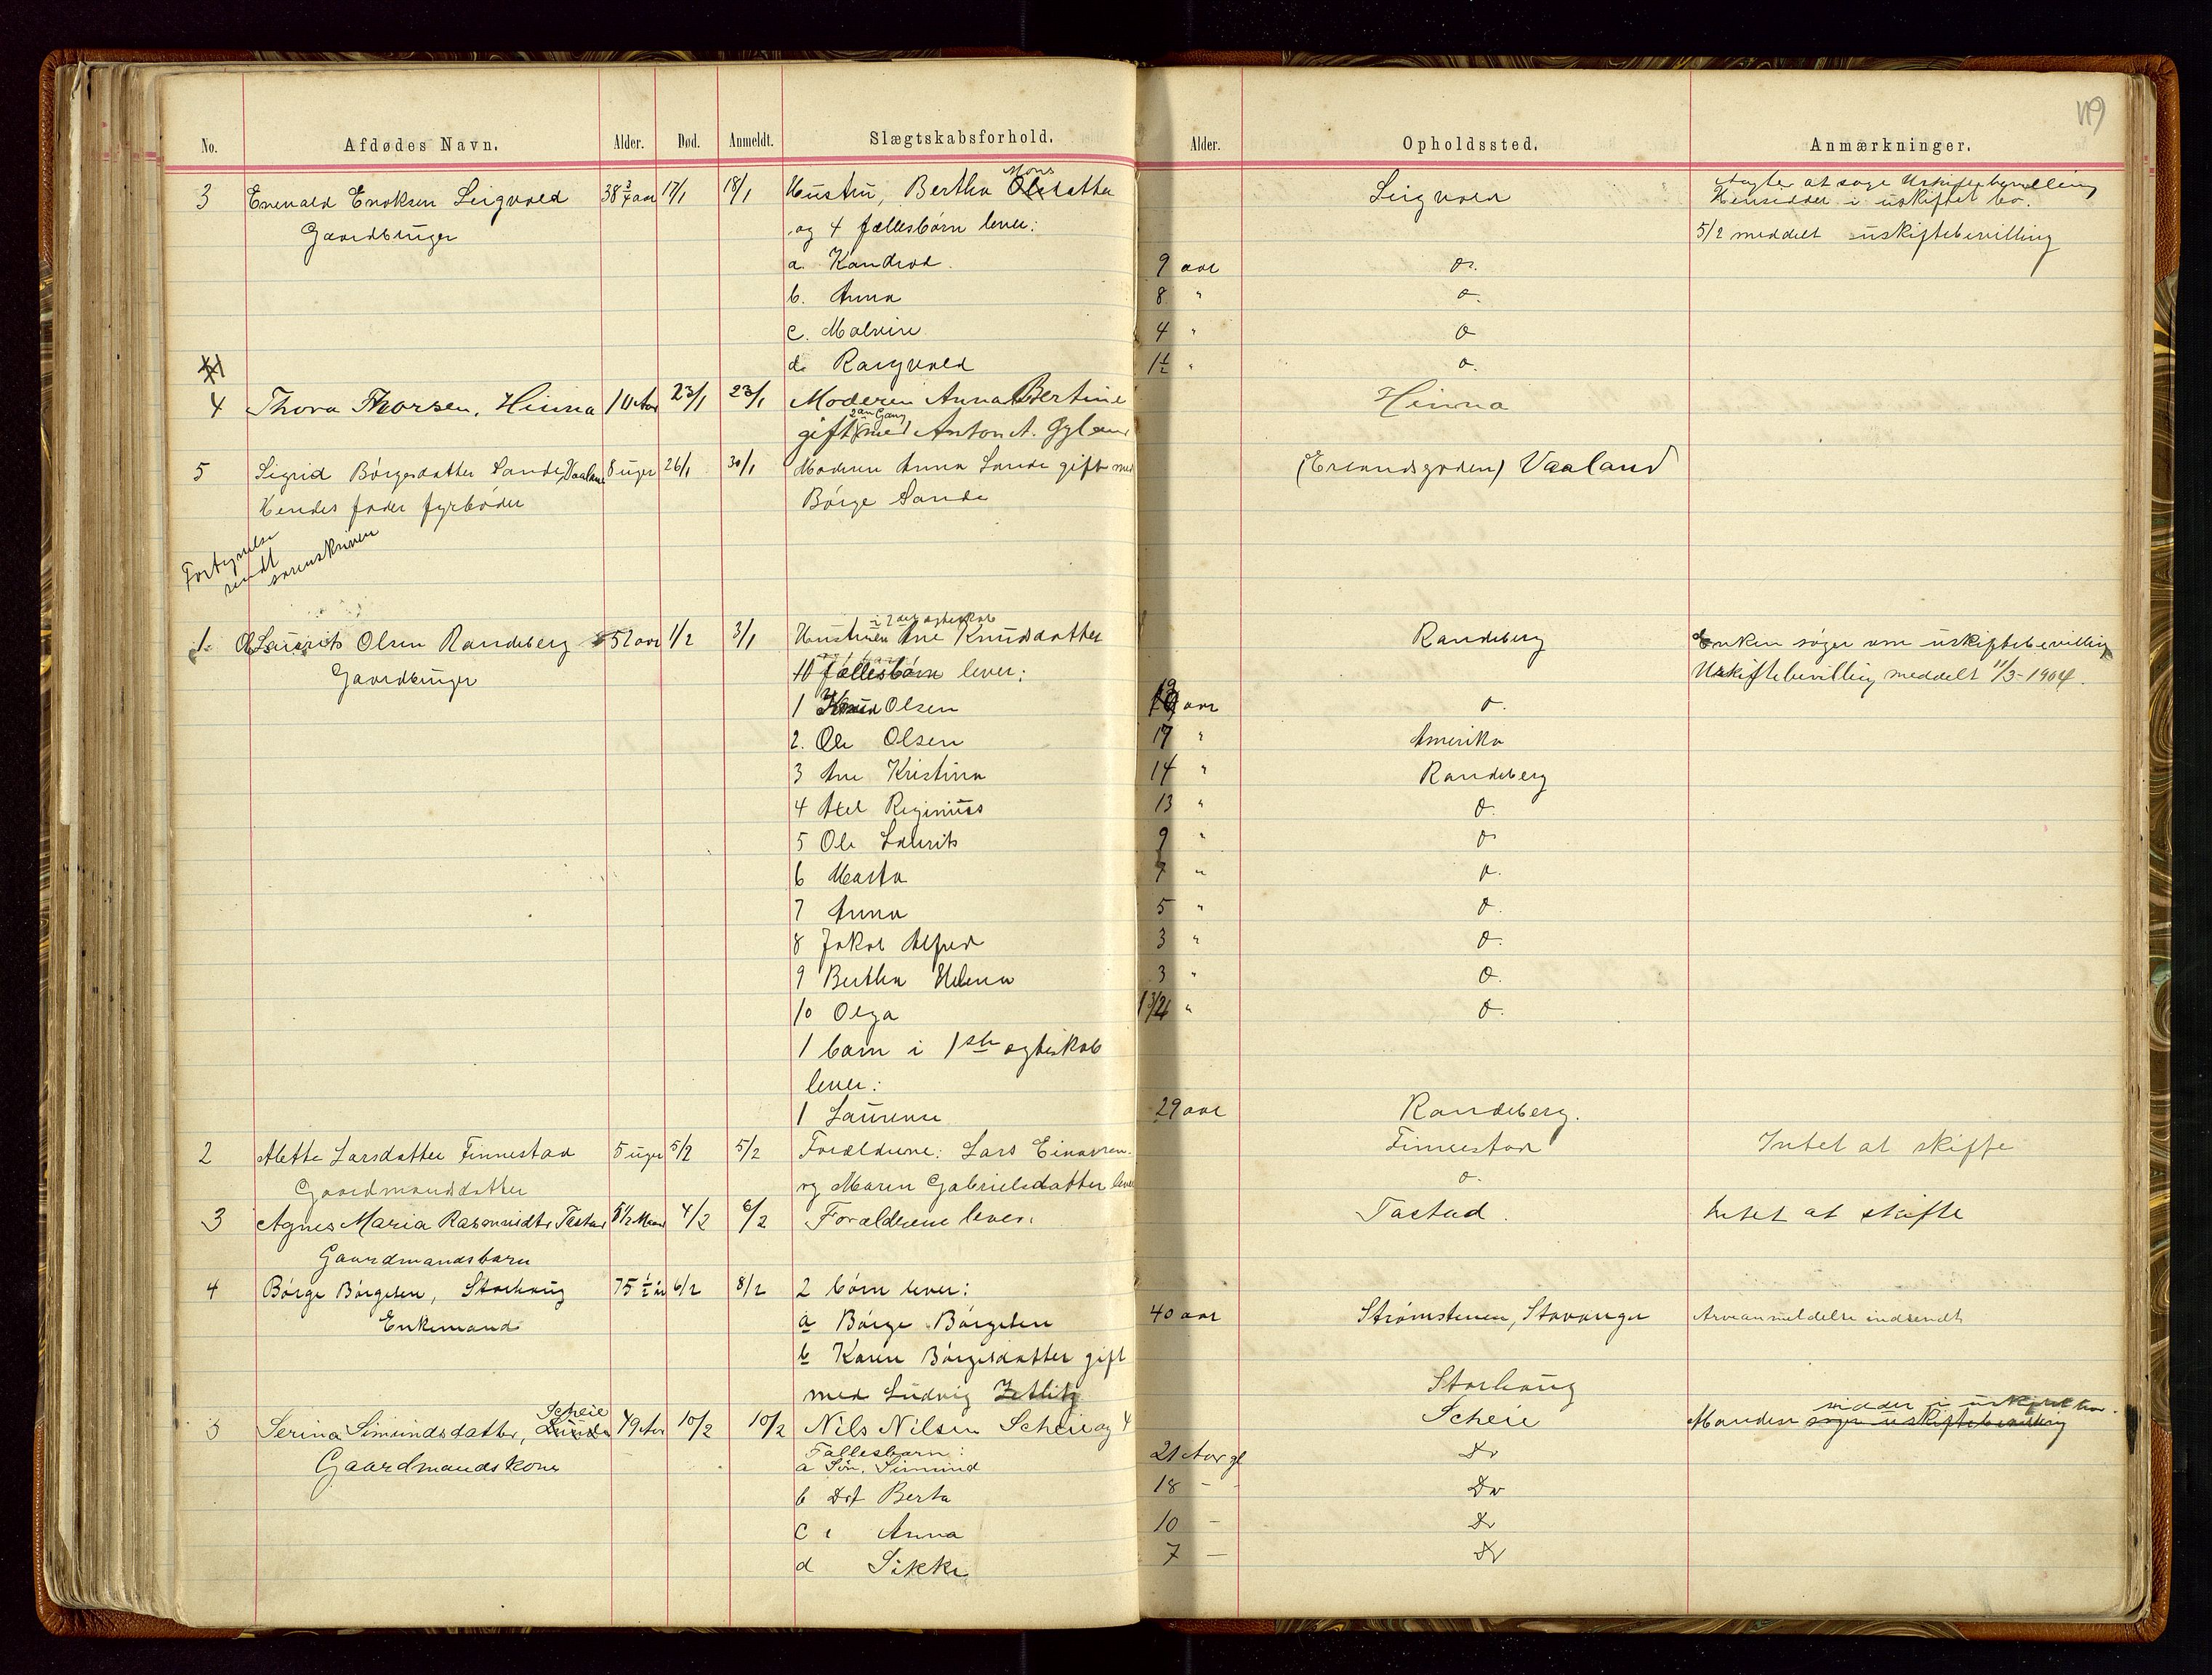 119
No. Afdødes Navn. Alder. Død. Anmeldt. Slægtskabsforhold. Alder. Opholdssted. Anmærkninger.
3 Enevald Enoksen Leigvold 38 3/4 aar 17/1 18/1 Hustru, Bertha Monsdatter Leigvold Agter at søge Uskiftebevilling
Hensidder i uskiftet bo.
Gaardbruger og 4 fællesbørn lever: 5/2 meddelt uskiftebevilling
a. Kandrod. 9 aar do.
b. Anna 8 " do.
c. Malvine 4 " do
d. Ragnvald 1 1/2 " do.
4 Thora Thorsen, Hinna 1 23/1 23/1 Moderen Anna Bertine Hinna
gift 2an Gang med Anton A. Gyland
5 Sigrid Børgesdatter Sande, Vaaland 8 uger 26/1 30/1 Moderen Anna Sande gift med (Erlandsgaden) Vaaland
Hendes fader fyrbøder Børge Sande
Fortegnelse
sendt
sorenskriven
1. Laurits Olsen Randeberg 52 aar 1/2 3/1 Hustruen i 2det ægteskab Ane Knudsdatter Randeberg Enken søger om uskiftebevilling
Gaardbruger 10 fællesbørn lever: Uskiftebevilling meddelt 11/3-1904.
1 Olsen 19 aar do.
2. Ole Olsen 17 " Amerika
3 Ane Kristina 14 " Randeberg
4 Axel Reginius 13 " do.
5 Ole Laurits 9 " do
6 Marta 7 " do.
7 Anna 5 " do.
8 Jakob Alfred 3 " do.
9 Bertha Helena 3 " do.
10 Olga 1 3/4 " do.
1 barn i 1ste ægteskab
lever:
1 Laurense 29 aar Randeberg.
2 Alette Larsdatter Finnestad 5 uger 5/2 5/2 Forældrene: Lars Einarsen Finnestad Intet at skifte
Gaardmandsdatter og Maren Gabrielsdatter lever do.
3 Agnes Maria Rasmusdtr Tastad 5 1/2 Maan 4/2 6/2 Forældrene lever. Tastad. Intet at skifte
Gaardmandsbarn
4 Børge Børgesen, Storhaug 75 1/2 år 6/2 8/2 2 børn lever:
Enkemand a Børge Børgesen 40 aar Strømstenen, Stavanger Arveanmeldelse indsendt
b Karen Børgesdatter gift
med Ludvig Zetlitz Storhaug
5 Serina Simundsdatter, Lunde Scheie 49 Aar 10/2 10/2 Nils Nilsen Scheie og 4 Scheie Manden søger uskiftebevilling sidder i uskiftet bo.
Gaardmandskone Fællesbarn:
a Søn. Simund 21 Aar gl Do
b Dat Berta 18 - Do
c " Anna 10 - Do
d Sikke 7 - Do